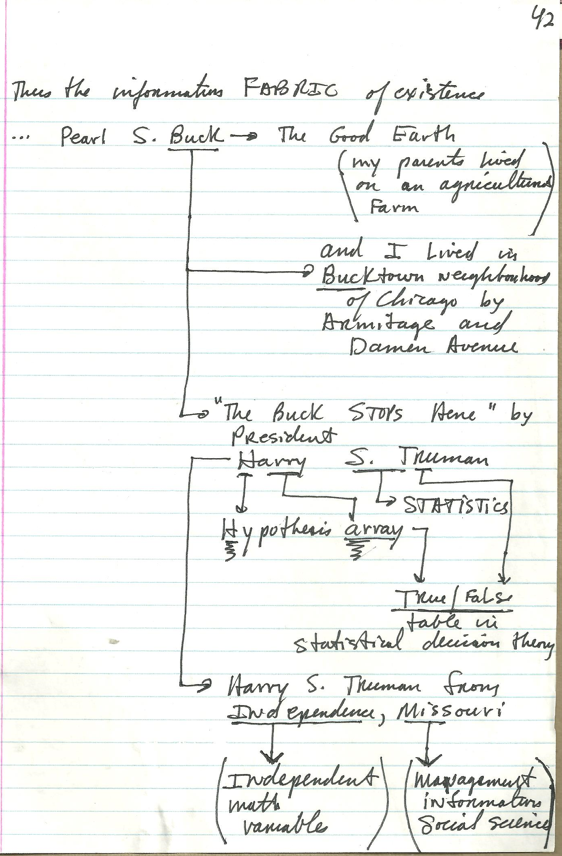 42
Thus the information FABRIC of existence
... Pearl S. Buck → The Good Earth
(my parents lived
on an agricultural
Farm)
and I Lived in
Bucktown neighborhood
of Chicago by
Armitage and
Damen Avenue
"The Buck STOPS Here" by
President
Harry S. Truman
STATISTICS
Hypothesis array
True/False
table in
statistical decision theory
Harry S. Truman from
Independence, Missouri
(Independent
math
variables)
(Management
information
Social science)